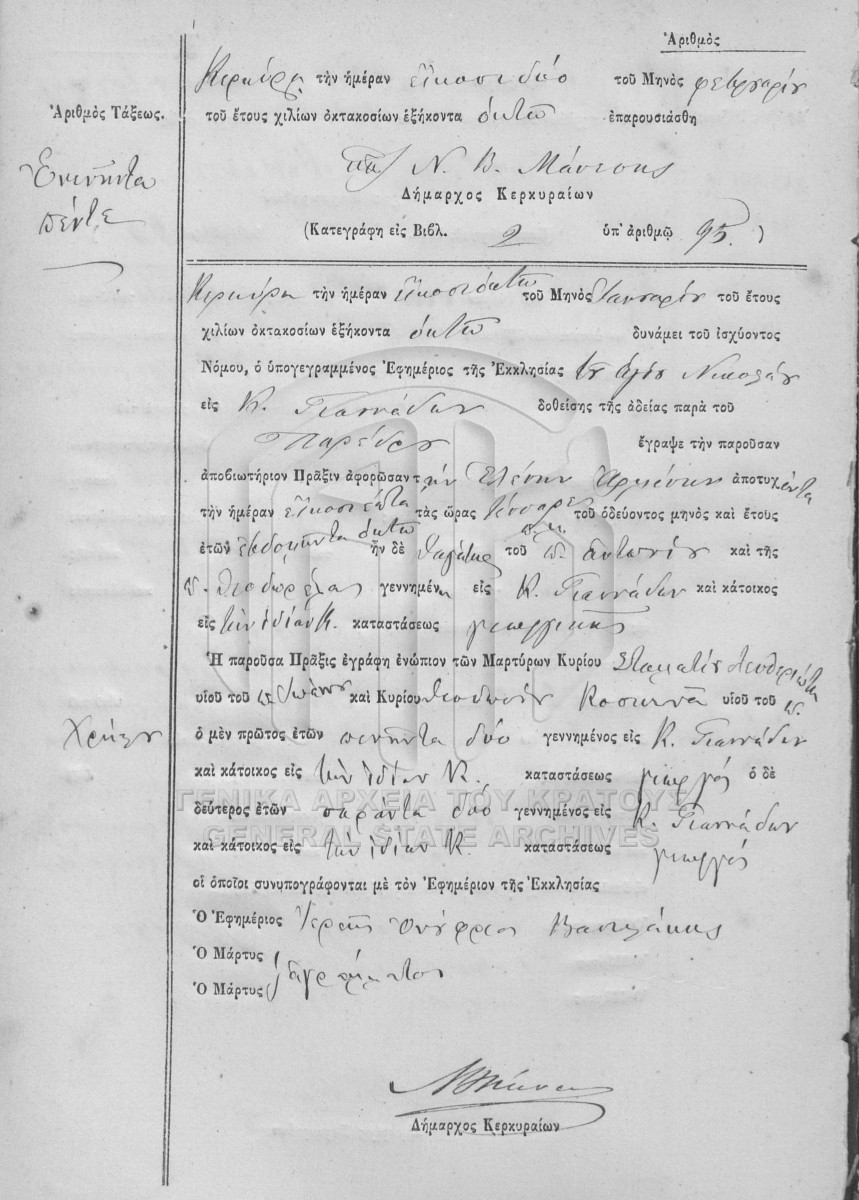 Ἀριθμὸς
Κερκύρᾳ τὴν ἡμέραν εἴκοσι δύο τοῦ Μηνὸς φεβρουαρίου
Ἀριθμὸς Τάξεως.
τοῦ ἔτους χιλίων ὀκτακοσίων ἑξήκοντα ὀκτὼ ἐπαρουσιάσθη
Ἐνενῆντα
πέντε
Ν. Β. Μάνεσης
Δήμαρχος Κερκυραίων
(Κατεγράφη εἰς Βιβλ. 2 ὑπ' ἀριθμῷ 95.)
Κερκύρᾳ τὴν ἡμέραν εἴκοσι ὀκτὼ τοῦ Μηνὸς Ἰανουαρίου τοῦ ἔτους
χιλίων ὀκτακοσίων ἑξήκοντα ὀκτὼ δυνάμει τοῦ ἰσχύοντος
Νόμου, ὁ ὑπογεγραμμένος Ἐφημέριος τῆς Ἐκκλησίας τοῦ Ἁγίου Νικολάου
εἰς Κ. Γιαννάδων δοθείσης τῆς ἀδείας παρὰ τοῦ
Παρέδρου ἔγραψε τὴν παροῦσαν
ἀποβιωτήριον Πρᾶξιν ἀφορῶσαν τὴν Ἑλένην ἀποτυχ
τὴν ἡμέραν εἴκοσι ἑπτὰ τὰς ὥρας τέσσαρες τοῦ ὁδεύοντος μηνὸς καὶ ἔτους
ἐτῶν ἑβδομῆντα ὀκτὼ ἦν δὲ τοῦ π. Ἀντωνίου καὶ τῆς
π. Θεοδωρούλας γεννημένη εἰς Κ. Γιαννάδων καὶ κάτοικος
εἰς τὴν ἰδίαν Κ. καταστάσεως γεωργικῆς
Ἡ παροῦσα Πρᾶξις ἐγράφη ἐνώπιον τῶν Μαρτύρων Κυρίου Σταματίου
υἱοῦ τοῦ π. Ἰωάννου καὶ Κυρίου Θεοδωσίου Κοσκινᾶ υἱοῦ τοῦ π.
ὁ μὲν πρῶτος ἐτῶν πενῆντα δύο γεννημένος εἰς Κ. Γιαννάδων
καὶ κάτοικος εἰς τὴν ἰδίαν Κ. καταστάσεως γεωργός ὁ δὲ
ΓΕΝΙΚΑ ΑΡΧΕΙΑ ΤΟΥ ΚΡΑΤΟΥΣ
δεύτερος ἐτῶν σαράντα δύο γεννημένος εἰς Κ. Γιαννάδων
GENERAL STATE ARCHIVES
καὶ κάτοικος εἰς τὴν ἰδίαν Κ. καταστάσεως γεωργός
οἱ ὁποῖοι συνυπογράφονται μὲ τὸν Ἐφημέριον τῆς Ἐκκλησίας
Ὁ Ἐφημέριος Ἱερεὺς Ὀνούφριος Βασιλάκης
Ὁ Μάρτυς ἀγράμματοι
Ὁ Μάρτυς
Δήμαρχος Κερκυραίων